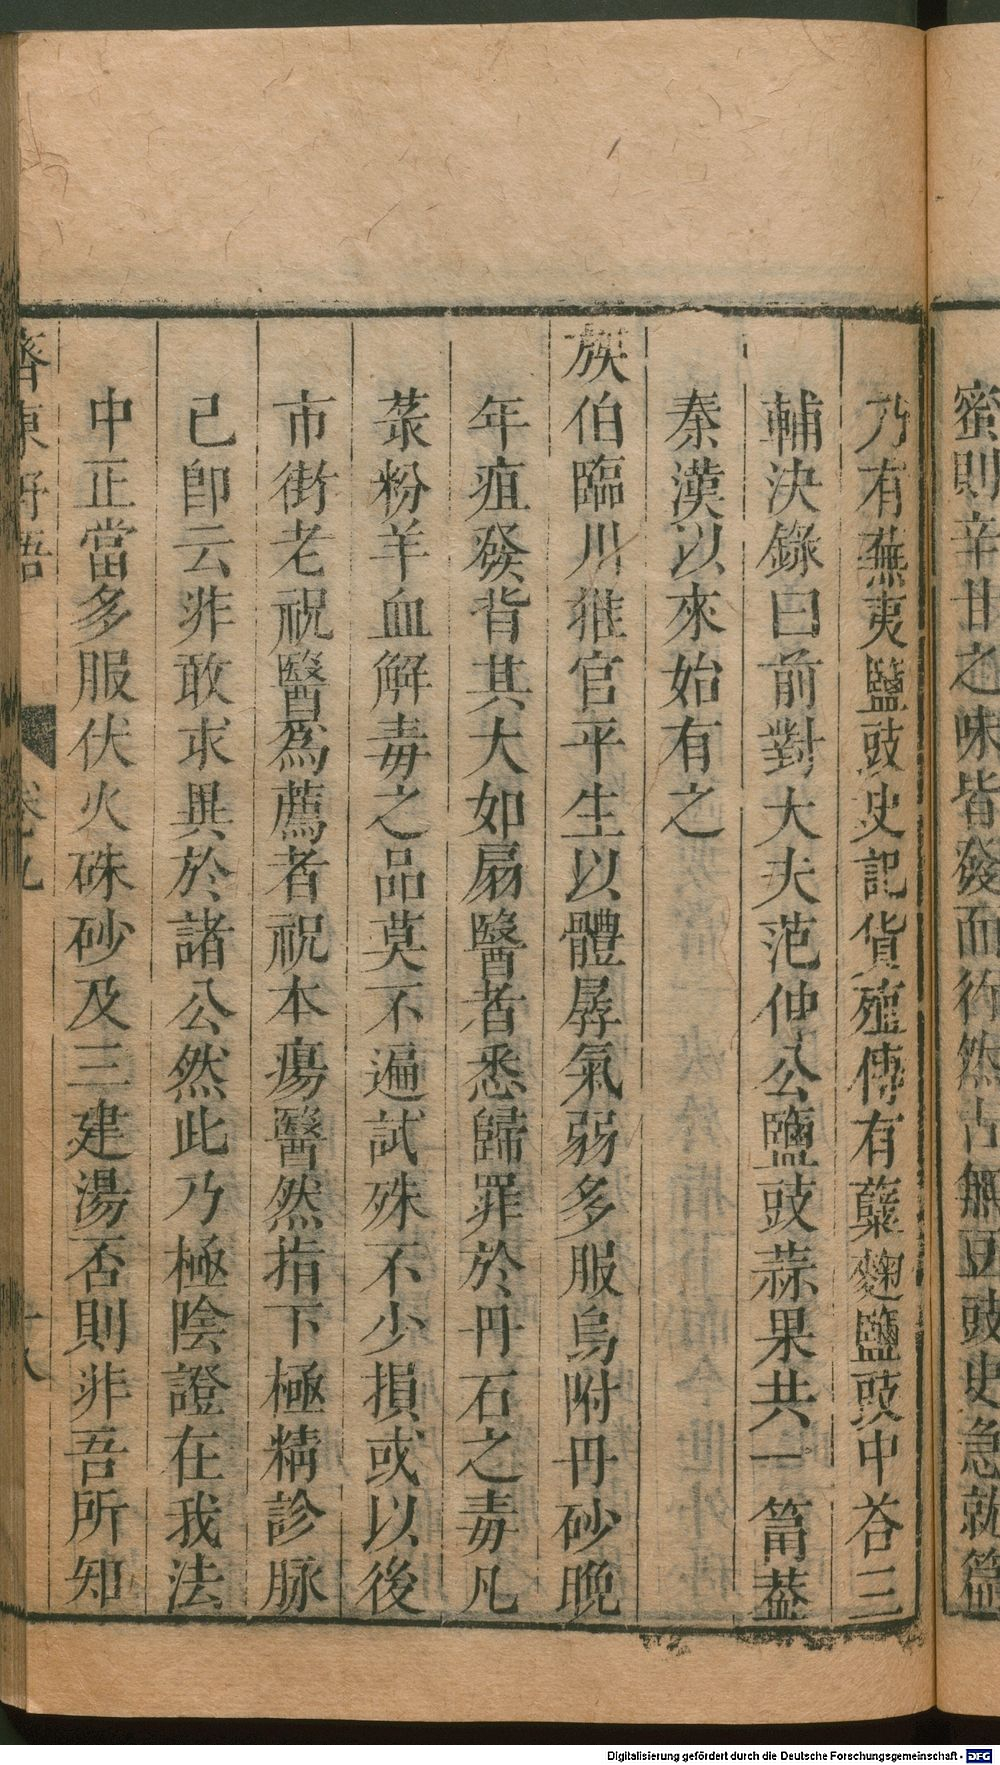 蜜則辛甘之味皆發而行然古無豆豉史急就篇
乃有蕪夷鹽豉史記貨殖傳有糱麴鹽豉中荅三
輔決錄曰前對大夫范仲公鹽豉蒜果共一筩葢
秦漢以來始有之
族伯臨川推官平生以體孱氣弱多服烏附丹砂晚
年疽發背其大如扇醫者悉歸罪於丹石之毒凡
菉粉羊血解毒之品莫不遍試殊不少損或以後
市街老祝醫爲薦者祝本瘍醫然指下極精診脉
已卽云非敢求異於諸公然此乃極陰證在我法
中正當多服伏火硃砂及三建湯否則非吾所知
齊東野語
卷九
十八
Digitalisierung gefördert durch die Deutsche Forschungsgemeinschaft - DFG